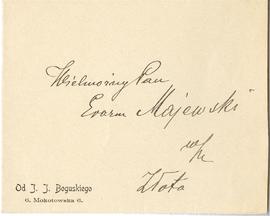 Wielmożny Pan
Erazm Majewski
w/m
Złota
Od J. J. Boguskiego
6. Mokotowska 6.